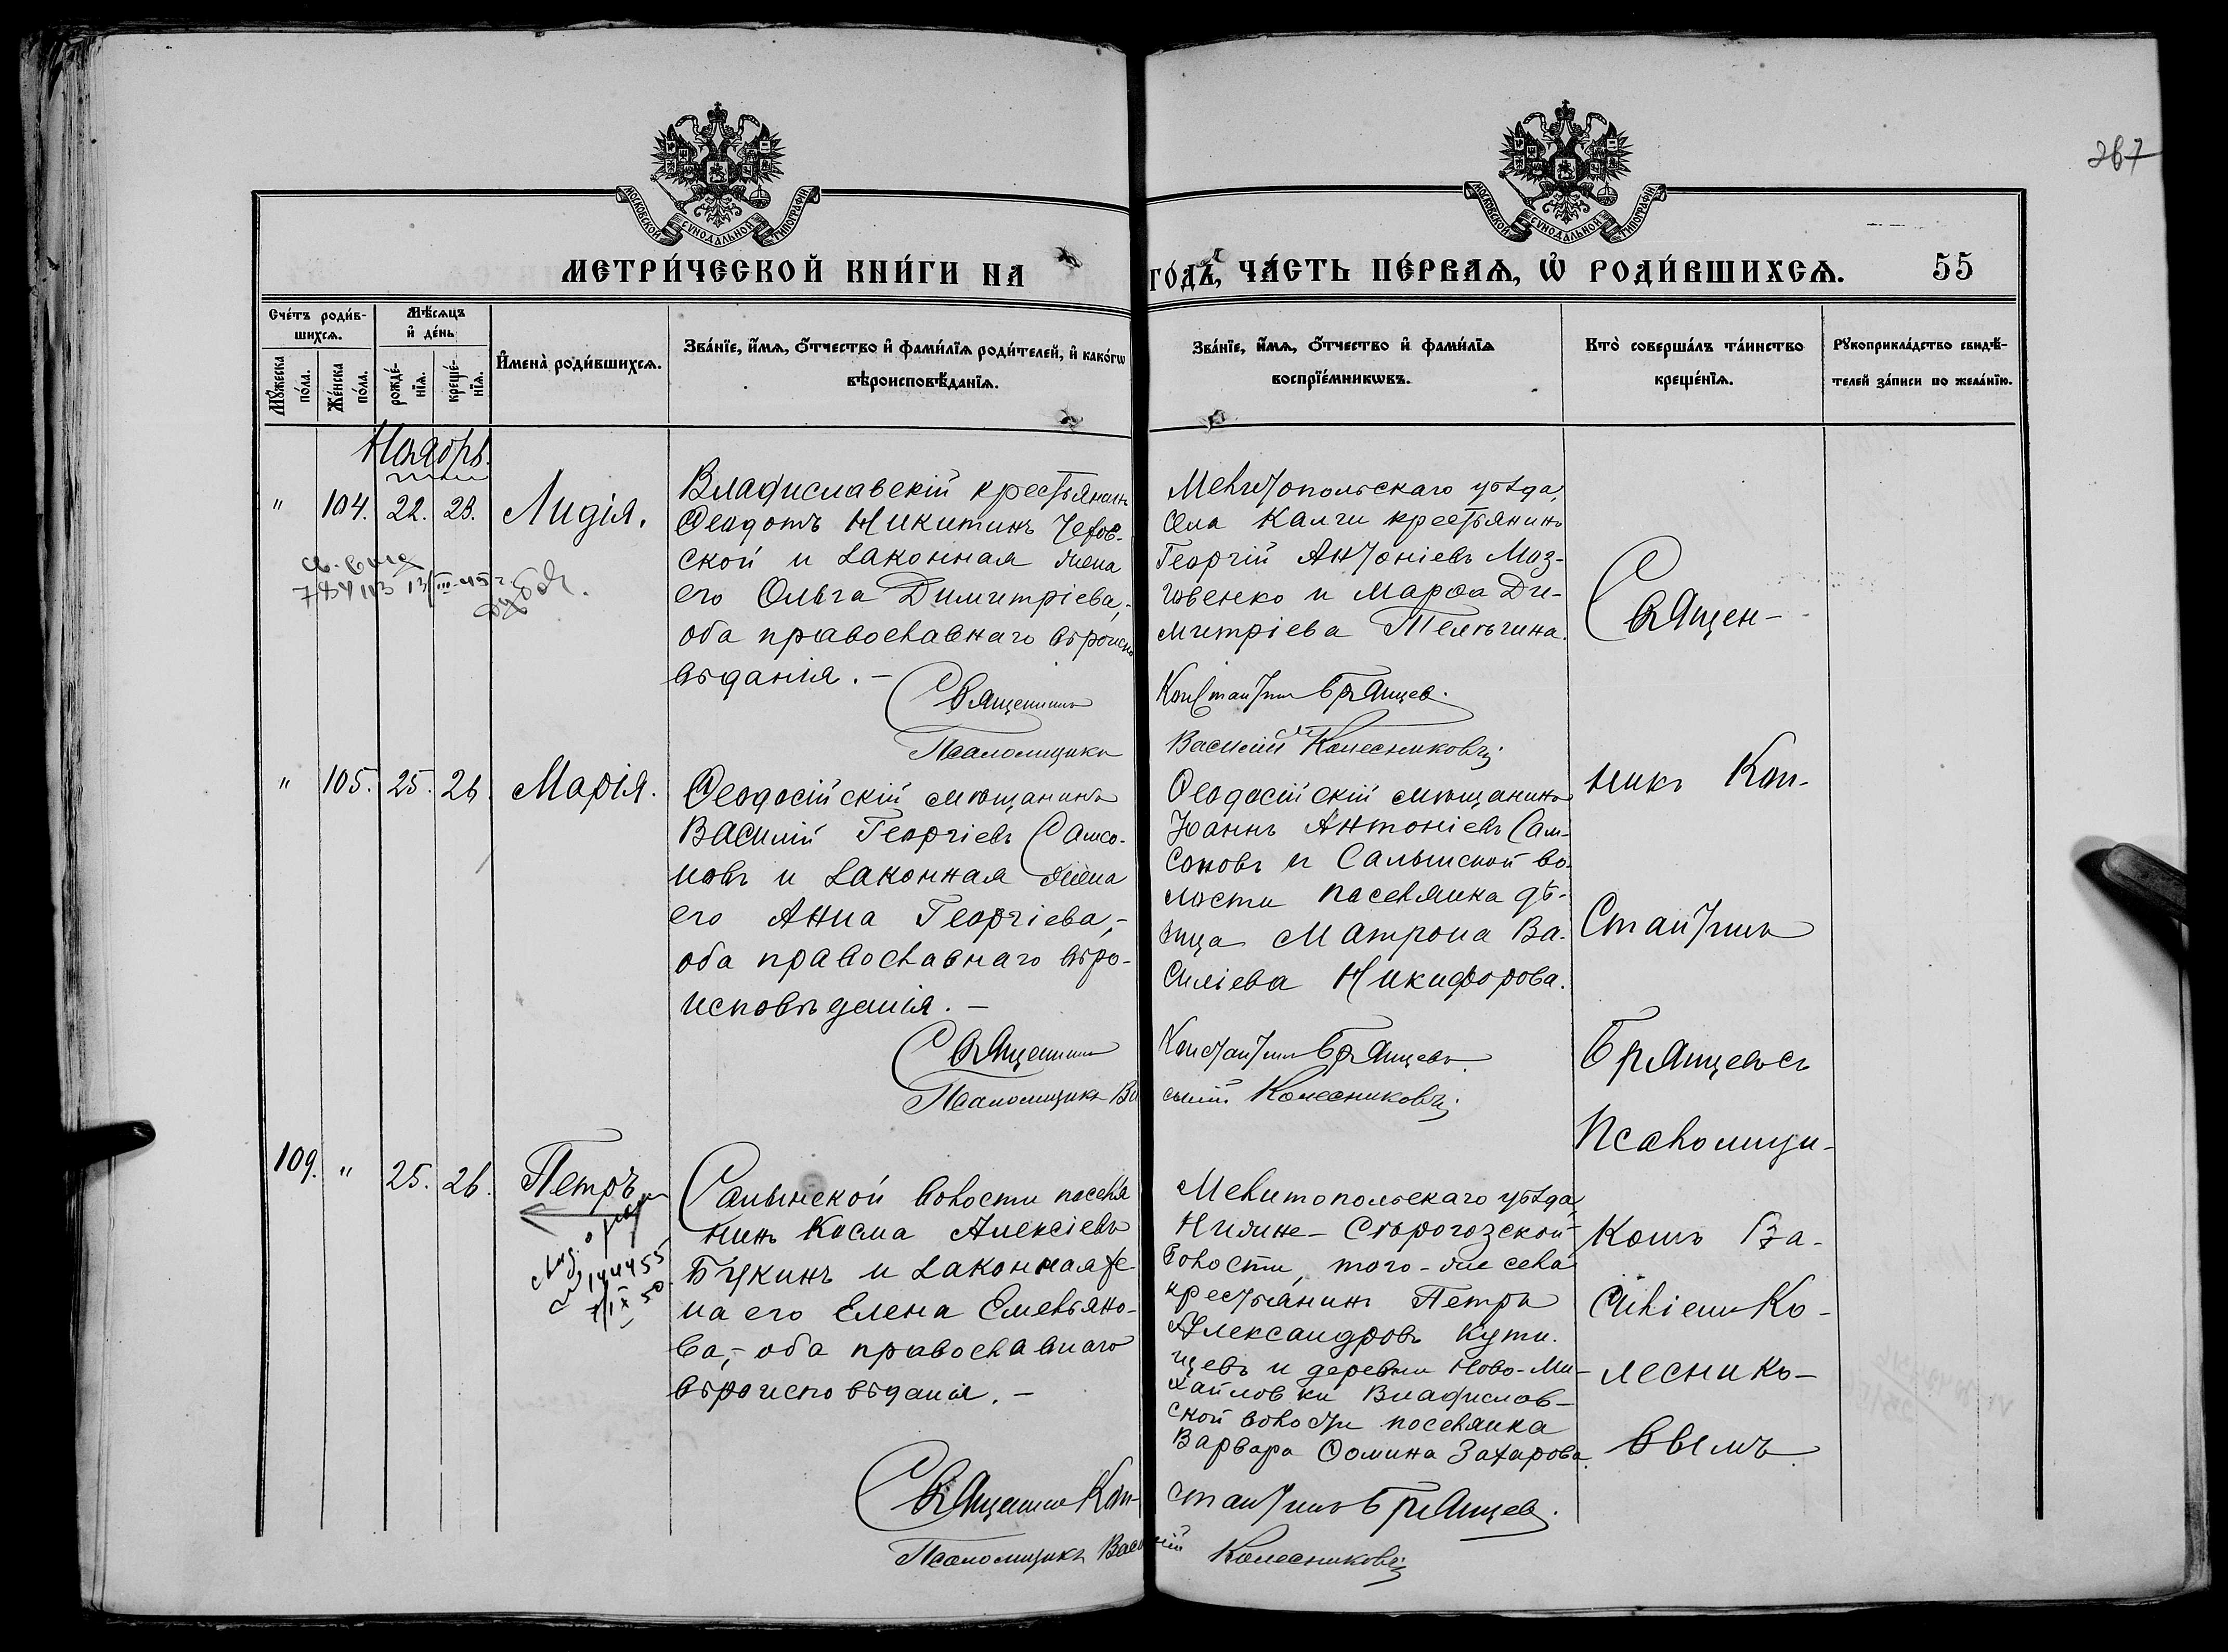 267
МОСКОВСКОЙ СѴНОДАЛЬНОЙ ТИПОГРАФІИ
МОСКОВСКОЙ СѴНОДАЛЬНОЙ ТИПОГРАФІИ
МЕТРИ́ЧЕСКОЙ КНИ́ГИ НА
ГО́ДЪ, ЧА́СТЬ ПЕ́РВАѦ, Ѡ҆ РОДИ́ВШИХСѦ.
55
Сче́тъ роди́в-
шихсѧ.
Мꙋ́жеска
по́ла.
Же́нска
по́ла.
Мѣ́сѧцъ
и҆ де́нь
рожде́-
нїѧ.
креще́-
нїѧ.
И҆мена̀ роди́вшихсѧ.
Зва́нїе, и҆́мѧ, ѻ҆́тчество и҆ фами́лїѧ роди́телей, и҆ како́гѡ
вѣроисповѣ́данїѧ.
Зва́нїе, и҆́мѧ, ѻ҆́тчество и҆ фами́лїѧ
воспрїе́мникѡвъ.
Кто̀ соверша́лъ та́инство
креще́нїѧ.
Рꙋкоприкла́дство свидѣ́-
телей за́писи по жела́нїю.
Ноябрь.
" 104. 22. 23. Лидія.
Владиславскій крестьянинъ
Ѳеодотъ Никитинъ Чехов-
ской и законная жена
его Ольга Димитріева,-
оба православнаго вѣроиспо
вѣданія.-
Священникъ
Псаломщикъ
Мелитопольскаго уѣзда,
села Калги крестьянинъ
Георгій Антоніевъ Моз-
говенко и Марѳа Ди-
митріева Телегина.
Константинъ Брянцев.
Василій Колесниковъ
" 105. 25. 26. Марія.
Ѳеодосійскій мѣщанинъ
Василій Георгіевъ Самсо-
новъ и законная жена
его Анна Георгіева,-
оба православнаго вѣро-
исповѣданія.-
Священникъ
Псаломщикъ Ва
Ѳеодосійскій мѣщанинъ
Іоаннъ Антоніевъ Сам-
соновъ и Салынской во-
лости поселянка дѣ-
вица Матрона Ва-
силіева Никифорова.
Константинъ Брянцевъ.
силій Колесниковъ
109. " 25. 26. Петръ
144455
Салынской волости поселя
нинъ Косма Алексіевъ
Букинъ и законная же-
на его Елена Емельяно-
ва,- оба православнаго
вѣроисповѣданія.-
Священникъ Кон-
Псаломщикъ Васи
Мелитопольскаго уѣзда,
Нижне-Сѣрогозской
волости, того-же села
крестьянинъ Петръ
Александровъ Кути-
щевъ и деревни Ново-Ми-
хайловки Владислав-
ской волости поселянка
Варвара Ѳомина Захарова.
стантинъ Брянцев.
лій Колесниковъ
Священ-
никъ Кон-
стантинъ
Брянцевъ съ
Псаломщи-
комъ Ва-
силіемъ Ко-
леснико-
вымъ.